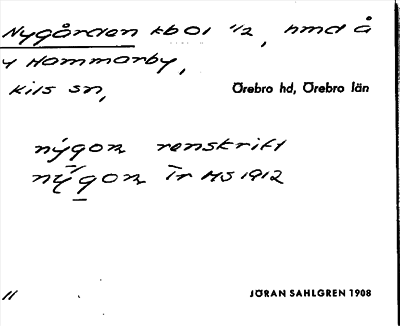 Nygården kb 01 1/2, hmd å
y Hammarby,
Kils sn, Örebro hd, Örebro län
nýgoɳ renskrift
nýgoɳ Ir HS 1912
11 JÖRAN SAHLGREN 1908